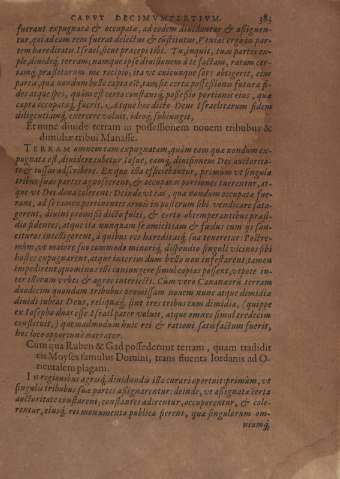 CAPVT DECIMVMTERTIVM. 383
fuerant expugnata & occupata, ad eodem diuiduntur & assignen-
tur, qui ad eam rem fuerat delectus & constitutus, Veniat ergo in par-
tem hæreditatis Israel, sicut præcepi tibi. Tu, inquit, tuas partes ex-
ple, diuideq; terram; namque ipse diuisionem à te factam, ratam cer-
tamq; præstaturum me recipio, ita vt cuicunque sors obtigerit, eius
parta, quæ nondum bello capta est, tam sit certa possessionis futura fi-
des atque spes, quàm est certa constansq; possessio portionis eius, quæ
capta occupataq; fuerit. Atque hoc dicto Deus Israelitarum fidem
diligentiamq; exercere voluit, ideoq; subiungit,
Et nunc diuide terram in possessionem nouem tribubus &
dimidiæ tribui Manasse.
TERRAM omnem tam expugnatam, quàm eam quæ nondum ex-
pugnata est, diuidere iubetur Iosue, eamq; diuisionem Dei auctorita-
te & iussu
tribus suas partes agnoscerent, & occupatas portiones tuerentur, at-
que vt Dei dona colerent: Deinde vt eas, quæ nondum occupatæ fue-
rant, ad se tamen pertinentes armis in posterum sibi vendicare sata-
gerent, diuini promissi dicto fulti, & certo ab imperantibus præsi-
dio fidentes, atque ita nunquam se amicitiam & fœdus cum iis san-
cituros intelligerent, à quibus res hæreditatisq; suæ tenerētur: Postre-
mùm, vt maiore suo commodo minoriq; dispendio singuli vicinos sibi
hostes expugnarent, atque interim dum bello non infestarent, tamen
impedirent, quominus illi coniungere simul copias possent, vtpote in-
ter illorum vrbes & agros interiecti. Cum verò Cananæam terram
duodecim quondam tribubus promissam nouem nunc atque dimidia
diuidi iubeat Deus, reliquæq; sint tres tribus cum dimidia, (quippe
ex Iosepho duas esse Israel pater voluit, atque omnes simul tredecim
constituit,) quemadmodum huic rei & rationi satisfactum fuerit,
hoc loco opportunè narratur.
Cum qua Ruben & Gad possederunt terram, quam tradidit
eis Moyses famulus Domini, trans fluenta Iordanis ad O-
rientalem plagam.
IN regionibus agrisq; diuidundis illa curari oportuit primùm, vt
singulis tribubus suæ partes assignarentur: deinde, vt assignatæ certa
auctoritate constarent; constantes adirentur, occuparentur, & cole-
rentur, eiusq; rei monumenta publica fierent, quæ singulorum om-
niumq;